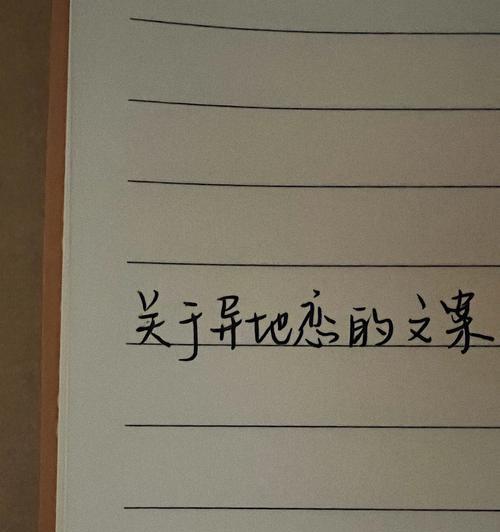 关于异地恋的文案